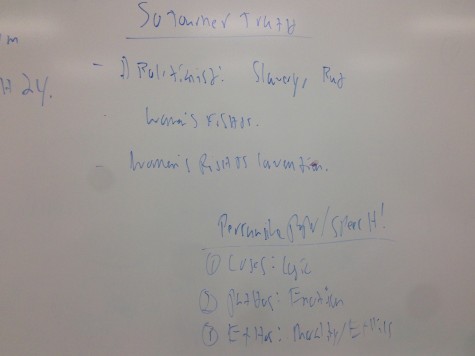 Sojourner Truth
- Abolitionist: Slavery,
Women's Rights.
- Women's Rights Convention.
24.
Persuasive Paper/Speech!
① Logos: Logic
② Pathos: Emotion
③ Ethos: Morality/Ethics